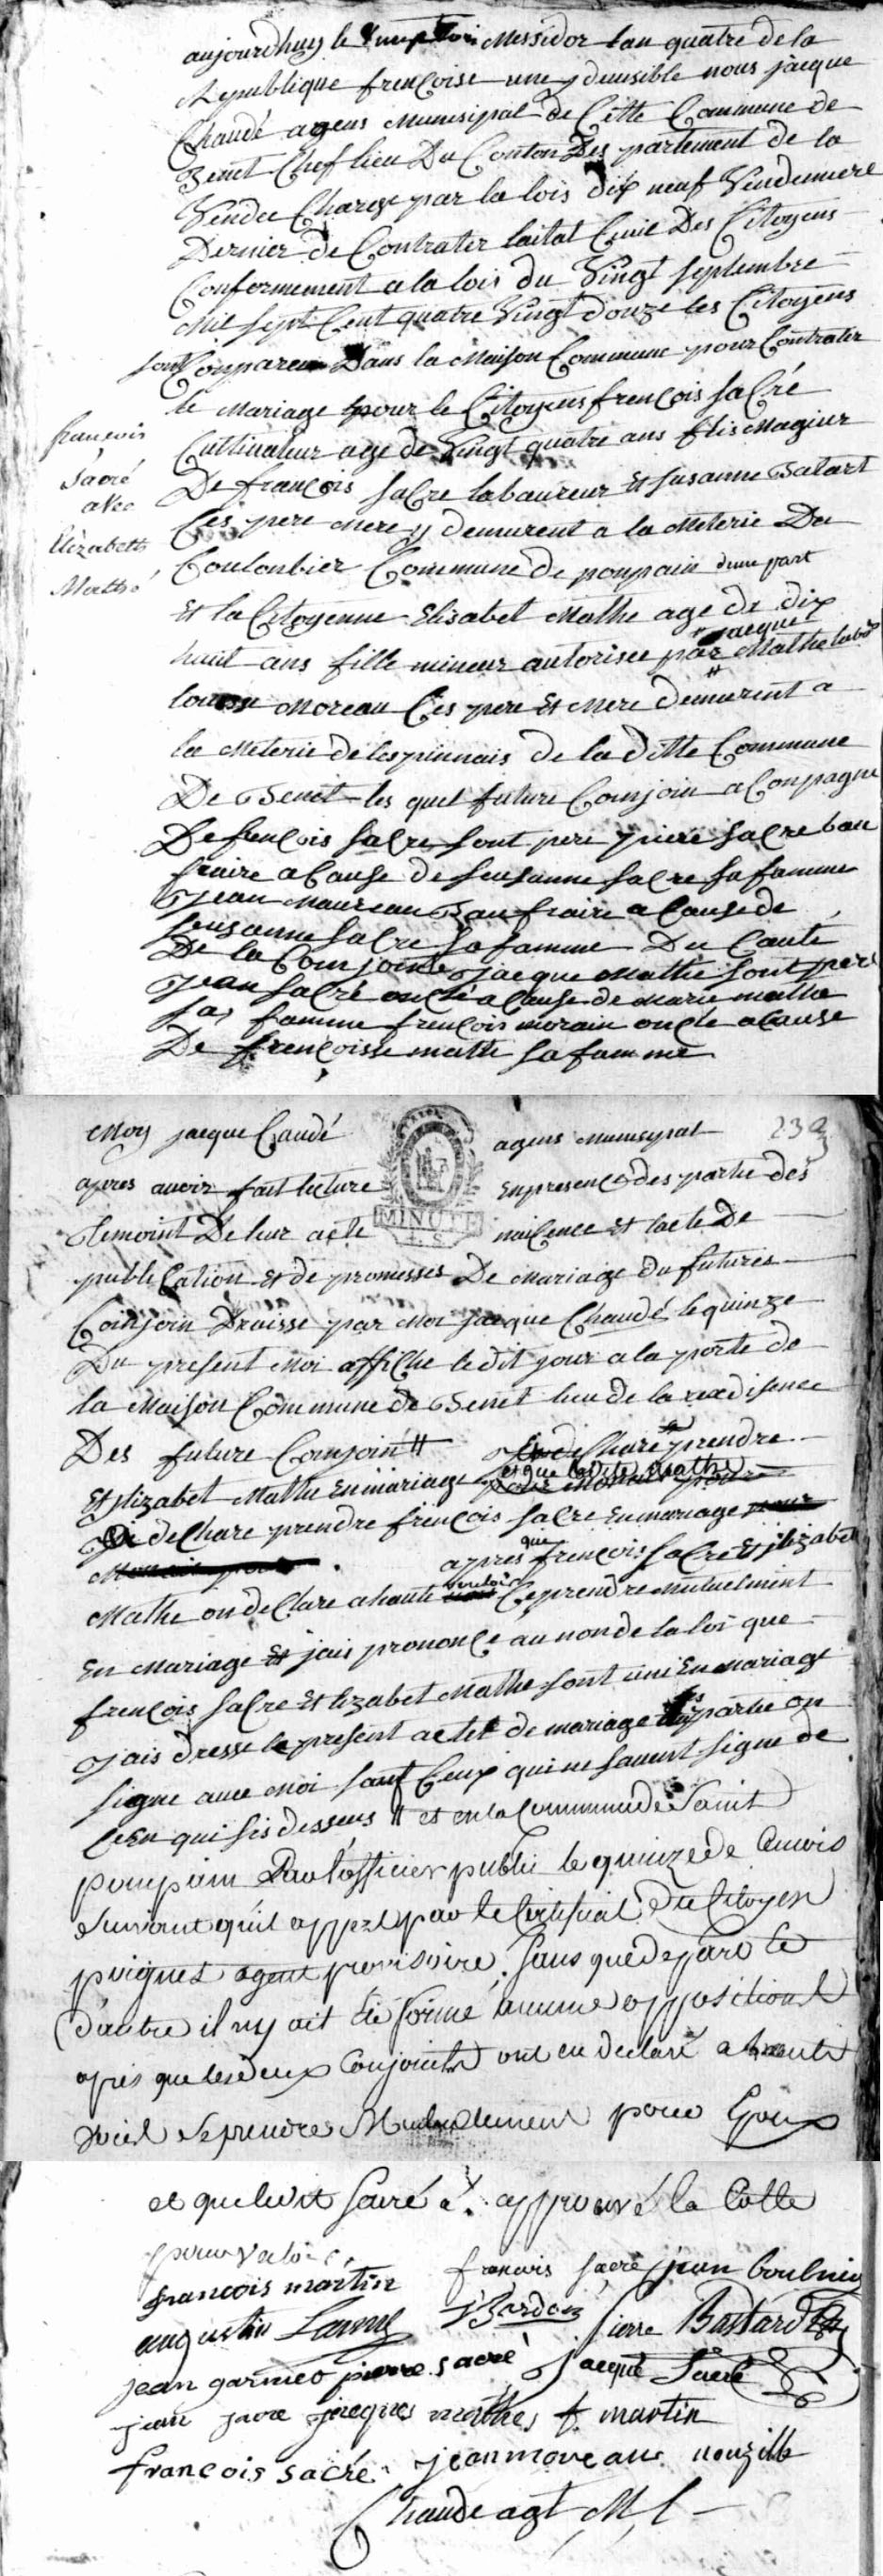 aujourdhuy le Messidor lan quatre de la
Republique frençoise une y deusible nous jacque
Chaudé agens munisipal de Cette Commune de
Benet Chef lieu Du Conton Des partement de la
Vendee Charge par la lois dix neuf Vendemiere
Dernier de Contrater laitat Civil Des Citoyens
Conformement a la lois du Vingt septembre
Mil sept Cent quatre Vingt douze les Citoyens
sont Conpareu Dans la Maison Commune pour Contrater
le Mariage pour le Citoyens frençois saCré
Cultivateur age de Vingt quatre ans fils Magiur
françois
Sacré
avec
Elizabeth
Mathé
De françois saCre laboureur Et susanne
Ces pere mere y demurent a la Meterie Du
Coulonbier Commune de ponpain dune part
Et la Citoyenne Elisabet Mathe age de dix
jacque
huit ans fille mineur autorisee par Mathe
Moreau Ces pere Et Mere demurent a
la Meterie de lespinnais de la ditte Commune
De Benet les quel future Conjoin a Conpagne
De frençois saCre sont pere piere saCre bau
fraire a Cause de susanne saCre sa famme
Jean Maureau Bau fraire a Cause de
sousanne saCre sa famme Du Cauté
De la Conjointe jacque Mathe sont pere
Jean saCré oncle a Cause de Marie mathe
sa famme frençois morain oncle a Cause
De frençoisse mathe sa famme
Moy jacque Caudé agens Munisypal 233
apres avoir fait lecture En presence des partie des
MINUTE
Temoint De leur acte naicence Et lacte De
publiCation Et de promesses De Mariage du futures
Coinjoin Draisse par Moi jacque Chaudé le quinze
Du present Moi affiche le dit jour a la porte de
la Maison Commune de Benet lieu de la rexdisence
Des future Conjoin # deChare prendre
Et Elizabet Mathe En mariage et que ladite Mathe
deChare prendre frençois saCre En mariage
apres que frençois saCre Et Elizabet
Mathe on deClare a haute vouloir Ce prendre mutuelment
En Mariage Et jais prononCe au non de la loi que
frençois saCre Et lizabet Mathe sont uni En Mariage
jais dresse le present acte de mariage les partie on
signe avec Moi sauf Ceux qui ne savent signe de
Ce En qui sis dessus # et en la Commune de Saint
ponpain Par lofficier public le quinze de Ce mois
suivant qu'il appert par le Certificat du Citoyen
puignet agent provisoire, sans que de part et
d'autre il n'y ait été formé aucune opposition
après que les deux Conjoints ont eu declaré a haute
voix se prendre Mutuelement pour Epoux
et que ledit sacré a. approuvé la Cotte
pour valoir.
françois martin françois sacré jean boulnier
augustin Lamy J Bardon Pierre Bastard
jean garnier pierre sacré Jacque Sacré
jean sacre jacques mathes f. martin
françois sacré jean moreau nouzille
Chaudé agt M l